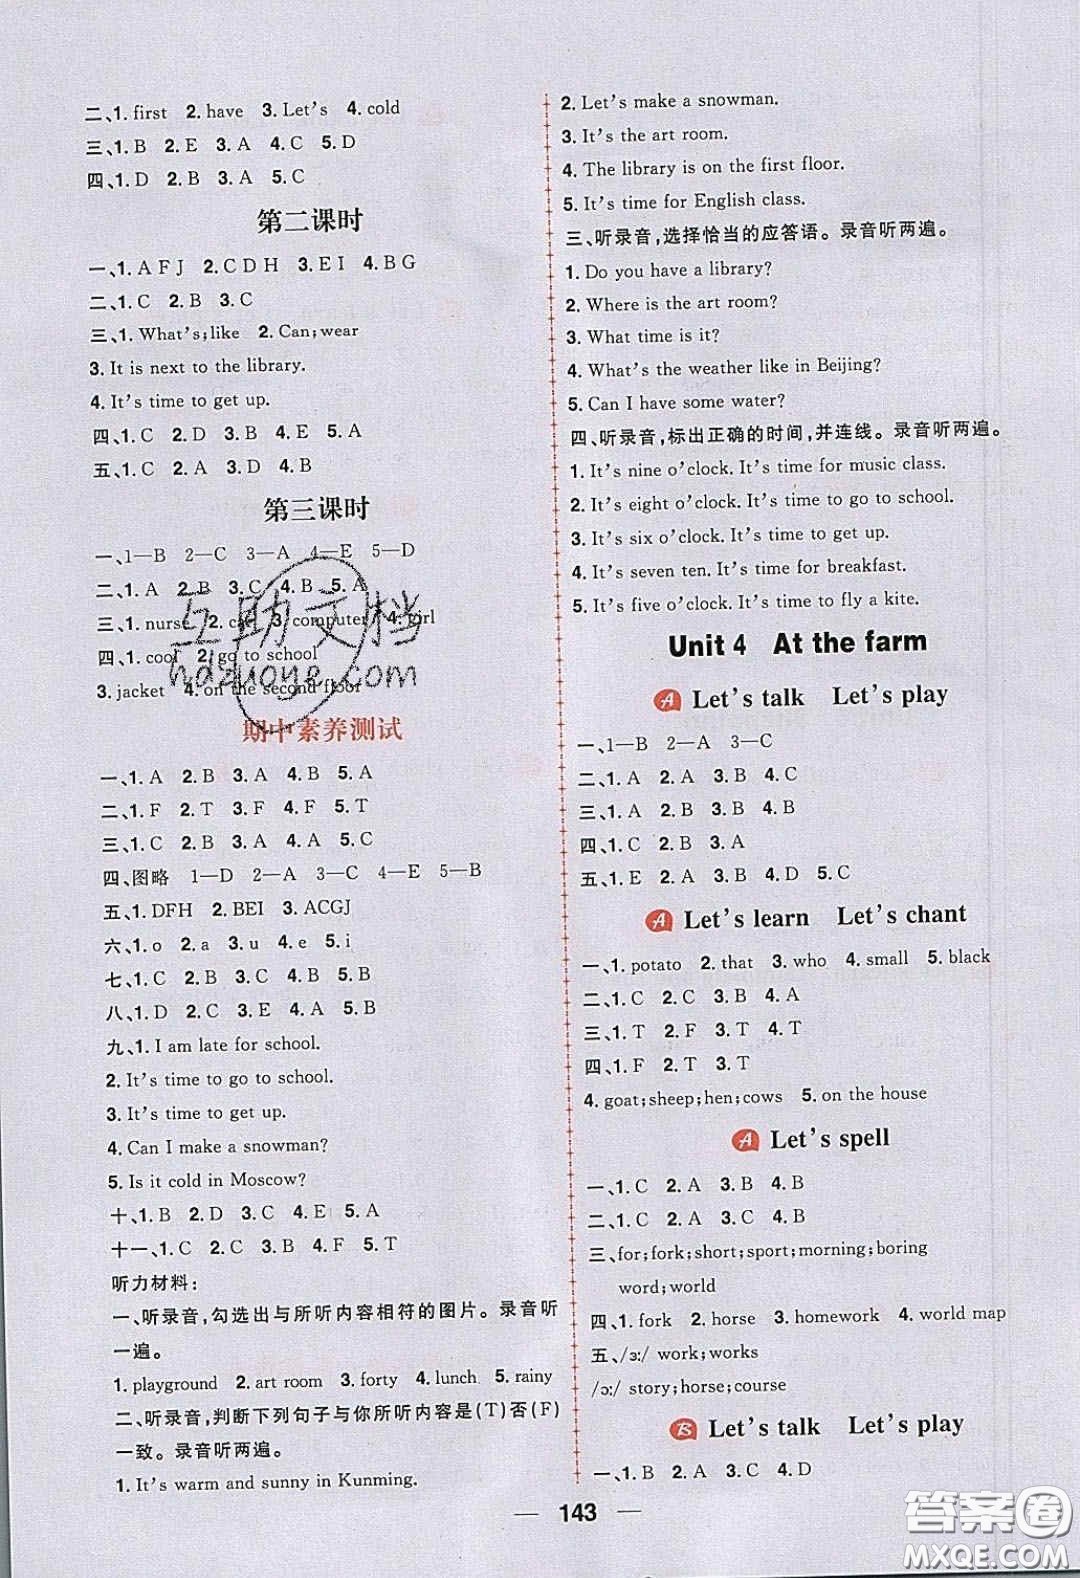 二、1. first 2. have 3. Let's 4. cold
三、1. B 2. E 3. A 4. C 5. D
四、1. D 2. B 3. A 5. C
第二课时
一、1. A F J 2. C D H 3. E I 4. B G
二、1. C 2. B 3. C
三、1. What's;like 2. Can;wear
3. It is next to the library.
4. It's time to get up.
四、1. C 2. D 3. B 4. E 5. A
五、1. C 2. A 3. D 4. B
第三课时
一、1—B 2—C 3—A 4—E 5—D
二、1. A 2. B 3. C 4. B 5. A
三、1. nurse 2. car 3. computer 4. girl
四、1. cool 2. go to school
3. jacket 4. on the second floor
互助文档
hdzuoye.com
期中素养测试
一、1. A 2. B 3. A 4. B 5. A
二、1. F 2. T 3. F 4. F 5. T
三、1. C 2. B 3. A 4. A 5. C
四、图略 1—D 2—A 3—C 4—E 5—B
五、1. DFH 2. BEI 3. ACGJ
六、1. o 2. a 3. u 4. e 5. i
七、1. C 2. A 3. C 4. B 5. B
八、1. D 2. C 3. E 4. A 5. B
九、1. I am late for school.
2. It's time to go to school.
3. It's time to get up.
4. Can I make a snowman?
5. Is it cold in Moscow?
十、1. B 2. D 3. C 4. E 5. A
十一、1. C 2. C 3. B 4. B 5. A
听力材料:
一、听录音,勾选出与所听内容相符的图片。录音听
一遍。
1. playground 2. art room 3. forty 4. lunch 5. rainy
二、听录音,判断下列句子与你所听内容是(T)否(F)
一致。录音听两遍。
1. It's warm and sunny in Kunming.
2. Let's make a snowman.
3. It's the art room.
4. The library is on the first floor.
5. It's time for English class.
三、听录音,选择恰当的应答语。录音听两遍。
1. Do you have a library?
2. Where is the art room?
3. What time is it?
4. What's the weather like in Beijing?
5. Can I have some water?
四、听录音,标出正确的时间,并连线。录音听两遍。
1. It's nine o'clock. It's time for music class.
2. It's eight o'clock. It's time to go to school.
3. It's six o'clock. It's time to get up.
4. It's seven ten. It's time for breakfast.
5. It's five o'clock. It's time to fly a kite.
Unit 4 At the farm
A Let's talk Let's play
一、1—B 2—A 3—C
二、1. A 2. B 3. A 4. C
三、1. A 2. B 3. B 4. B
四、1. C 2. B 3. A
五、1. E 2. A 3. B 4. D 5. C
A Let's learn Let's chant
一、1. potato 2. that 3. who 4. small 5. black
二、1. C 2. C 3. B 4. A
三、1. T 2. F 3. T 4. T
四、1. F 2. T 3. T
4. goat;sheep;hen;cows 5. on the house
A Let's spell
一、1. C 2. A 3. B 4. B
二、1. C 2. A 3. C 4. B
三、for;fork;short;sport;morning;boring
word;world
四、1. fork 2. horse 3. homework 4. world map
五、/ɜː/ work;works
/ɔː/ story;horse;course
B Let's talk Let's play
一、1. B 2. A 3. C 4. D
143
答案圈
MXQE.COM